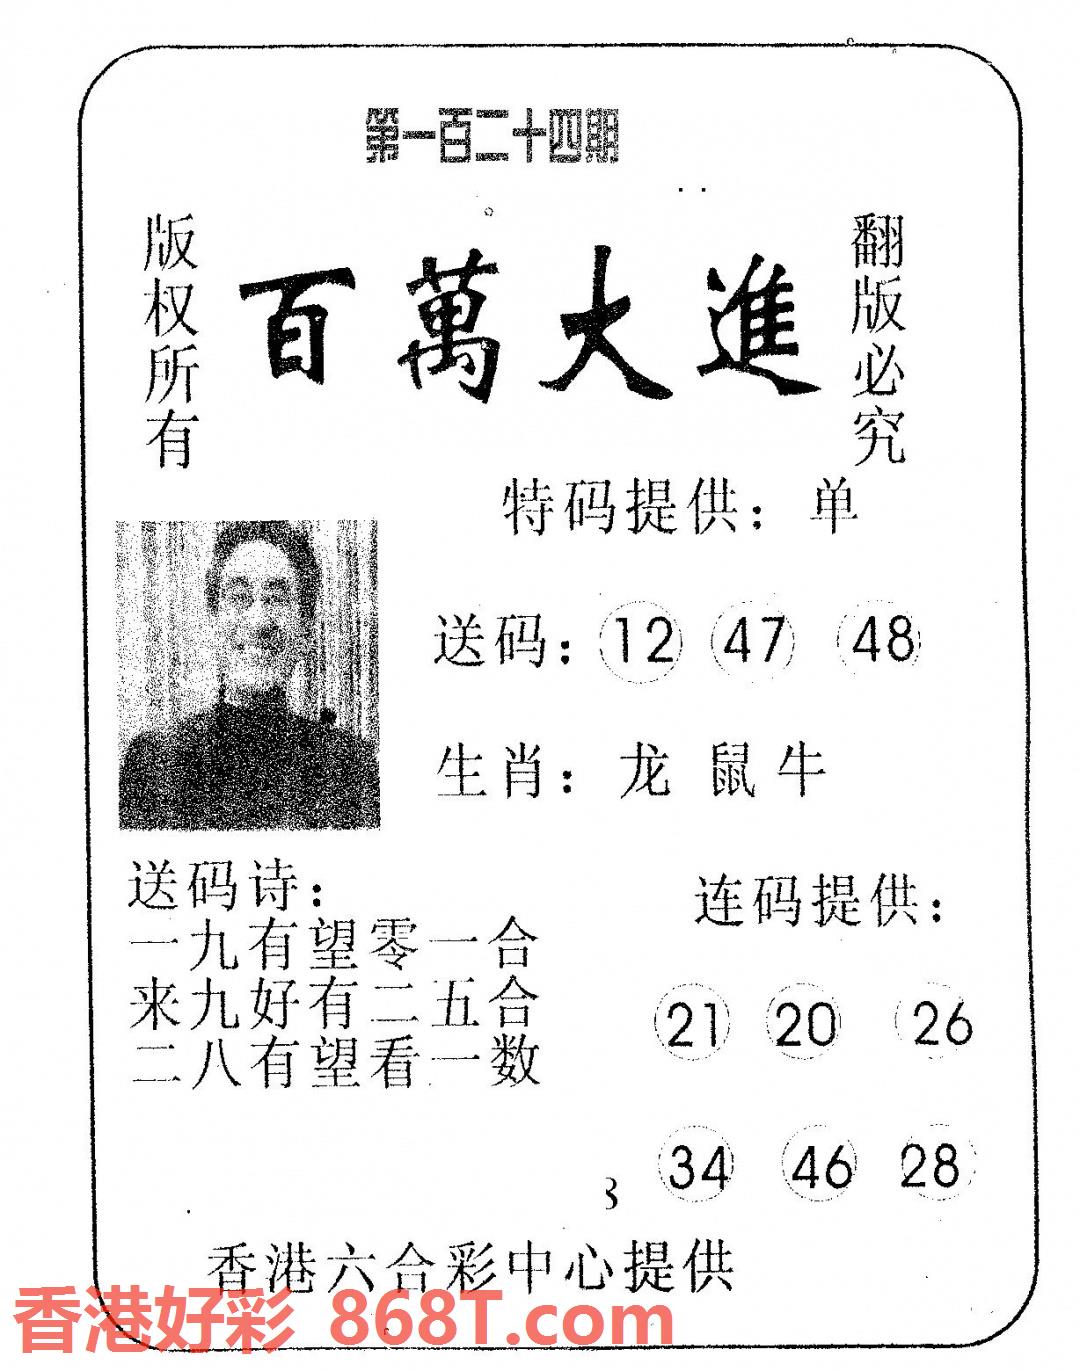 第一百二十四期
版权所有
百萬大進
翻版必究
特码提供：单
送码：12 47 48
生肖：龙 鼠 牛
送码诗：
一九有望零一合
来九好有二五合
二八有望看一数
连码提供：
21 20 26
34 46 28
香港六合彩中心提供
香港好彩 868T.com